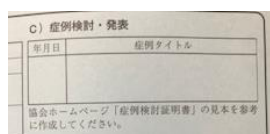 C）症例検討・発表
年月日 症例タイトル
協会ホームページ「症例検討証明書」の見本を参考
に作成してください。